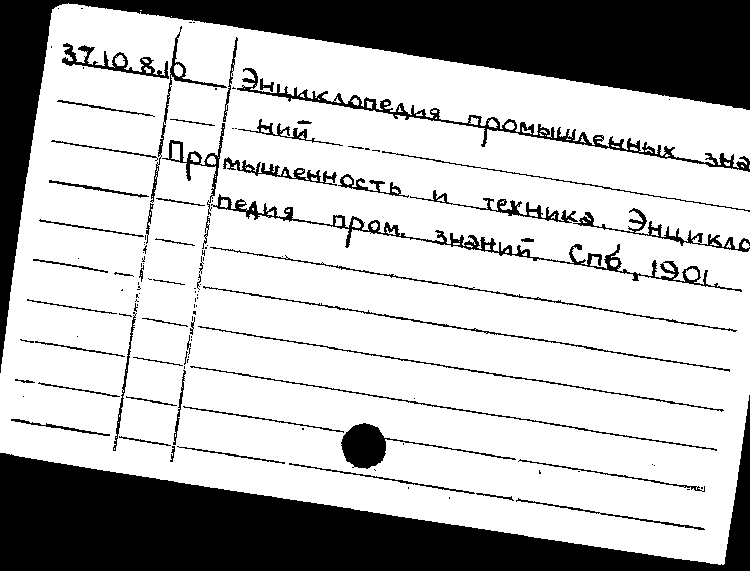 37.10.8.10 Энциклопедия промышленных зна
ний.
Промышленность и техника. Энцикло
педия пром. знаний. Спб., 1901.